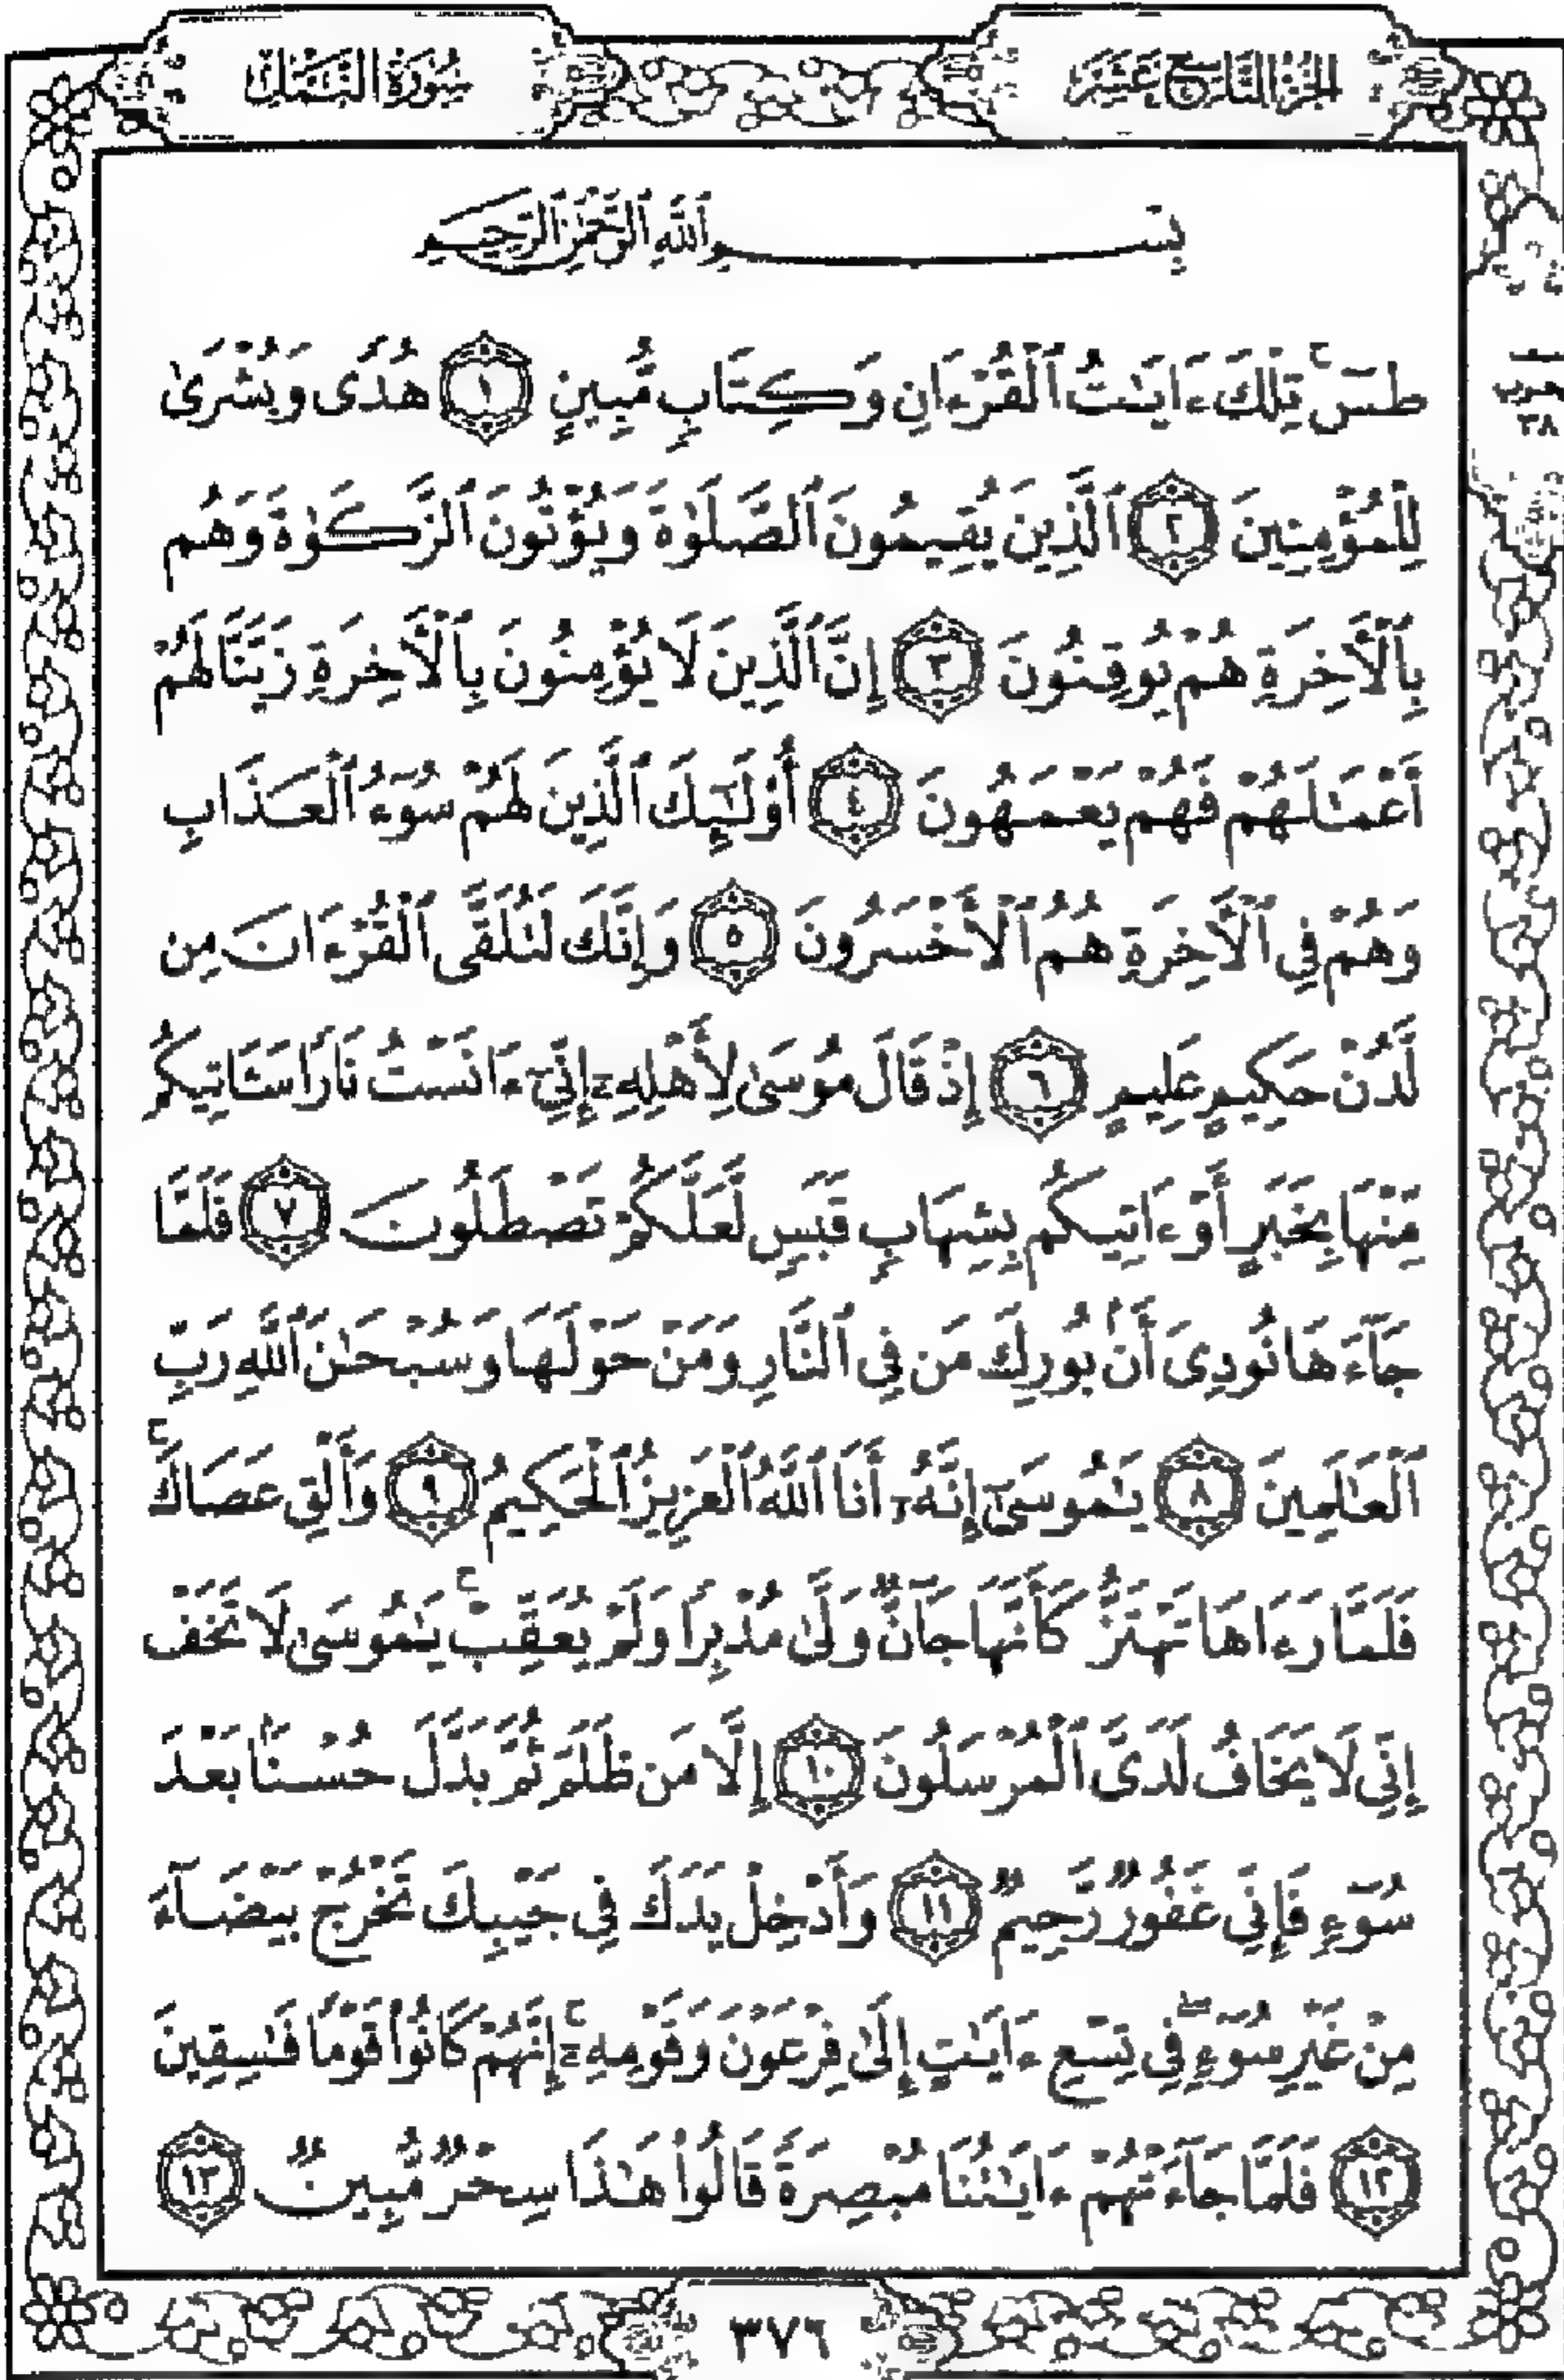 الجزء التاسع عشر
سورة النمل
بِسْمِ ٱللَّهِ ٱلرَّحْمَٰنِ ٱلرَّحِيمِ
طسٓۚ تِلْكَ ءَايَٰتُ ٱلْقُرْءَانِ وَكِتَابٍ مُّبِينٍ ١ هُدًى وَبُشْرَىٰ
لِلْمُؤْمِنِينَ ٢ ٱلَّذِينَ يُقِيمُونَ ٱلصَّلَوٰةَ وَيُؤْتُونَ ٱلزَّكَوٰةَ وَهُم
بِٱلْأَخِرَةِ هُمْ يُوقِنُونَ ٣ إِنَّ ٱلَّذِينَ لَا يُؤْمِنُونَ بِٱلْأَخِرَةِ زَيَّنَّا لَهُمْ
أَعْمَٰلَهُمْ فَهُمْ يَعْمَهُونَ ٤ أُوْلَٰٓئِكَ ٱلَّذِينَ لَهُمْ سُوٓءُ ٱلْعَذَابِ
وَهُمْ فِي ٱلْأَخِرَةِ هُمُ ٱلْأَخْسَرُونَ ٥ وَإِنَّكَ لَتُلَقَّى ٱلْقُرْءَانَ مِن
لَّدُنْ حَكِيمٍ عَلِيمٍ ٦ إِذْ قَالَ مُوسَىٰ لِأَهْلِهِۦٓ إِنِّيٓ ءَانَسْتُ نَارًا سَـَٔاتِيكُم
مِّنْهَا بِخَبَرٍ أَوْ ءَاتِيكُم بِشِهَابٍ قَبَسٍ لَّعَلَّكُمْ تَصْطَلُونَ ٧ فَلَمَّا
جَآءَهَا نُودِيَ أَنۢ بُورِكَ مَن فِي ٱلنَّارِ وَمَنْ حَوْلَهَا وَسُبْحَٰنَ ٱللَّهِ رَبِّ
ٱلْعَٰلَمِينَ ٨ يَٰمُوسَىٰٓ إِنَّهُۥٓ أَنَا ٱللَّهُ ٱلْعَزِيزُ ٱلْحَكِيمُ ٩ وَأَلْقِ عَصَاكَۚ
فَلَمَّا رَءَاهَا تَهْتَزُّ كَأَنَّهَا جَآنٌّ وَلَّىٰ مُدْبِرًا وَلَمْ يُعَقِّبْۚ يَٰمُوسَىٰ لَا تَخَفْ
إِنِّي لَا يَخَافُ لَدَيَّ ٱلْمُرْسَلُونَ ١٠ إِلَّا مَن ظَلَمَ ثُمَّ بَدَّلَ حُسْنًۢا بَعْدَ
سُوٓءٍ فَإِنِّي غَفُورٌ رَّحِيمٌ ١١ وَأَدْخِلْ يَدَكَ فِي جَيْبِكَ تَخْرُجْ بَيْضَآءَ
مِنْ غَيْرِ سُوٓءٍۖ فِي تِسْعِ ءَايَٰتٍ إِلَىٰ فِرْعَوْنَ وَقَوْمِهِۦٓۚ إِنَّهُمْ كَانُواْ قَوْمًا فَٰسِقِينَ
١٢ فَلَمَّا جَآءَتْهُمْ ءَايَٰتُنَا مُبْصِرَةً قَالُواْ هَٰذَا سِحْرٌ مُّبِينٌ ١٣
٣٧٦